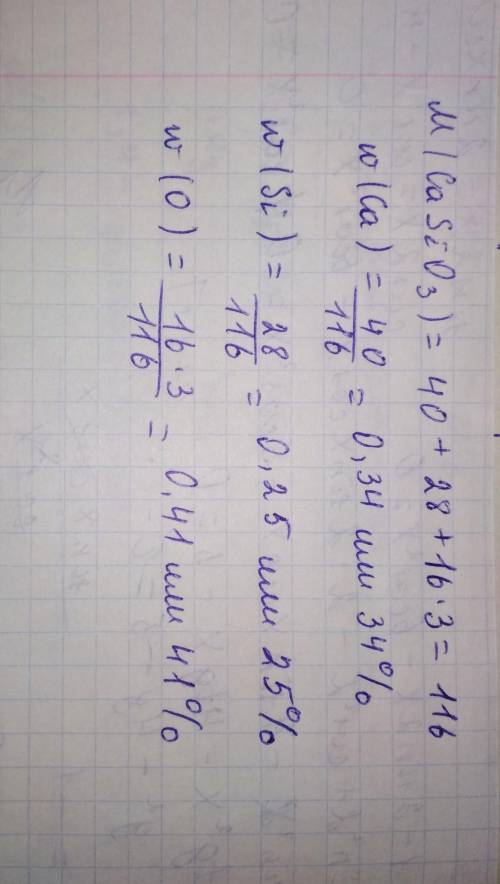 M(CaSiO₃) = 40 + 28 + 16·3 = 116
w(Ca) = 40/116 = 0,34 или 34%
w(Si) = 28/116 = 0,25 или 25%
w(O) = 16·3/116 = 0,41 или 41%